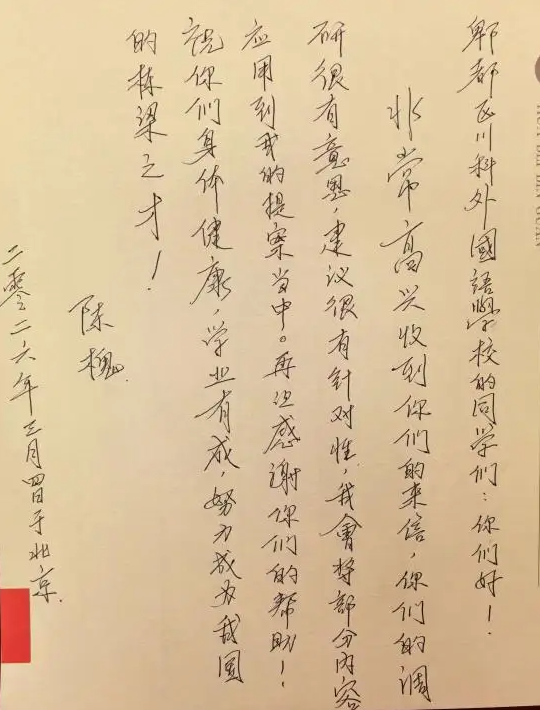 郫都区川科外國語學校的同学们：你们好！
非常高兴收到你们的来信，你们的调
研很有意思，建议很有针对性，我會将部分内容
应用到我的提案当中。再次感谢你们的帮助！
祝你们身体健康，学业有成，努力成为我国
的栋梁之才！
陈槐
二零二六年三月四日于北京.